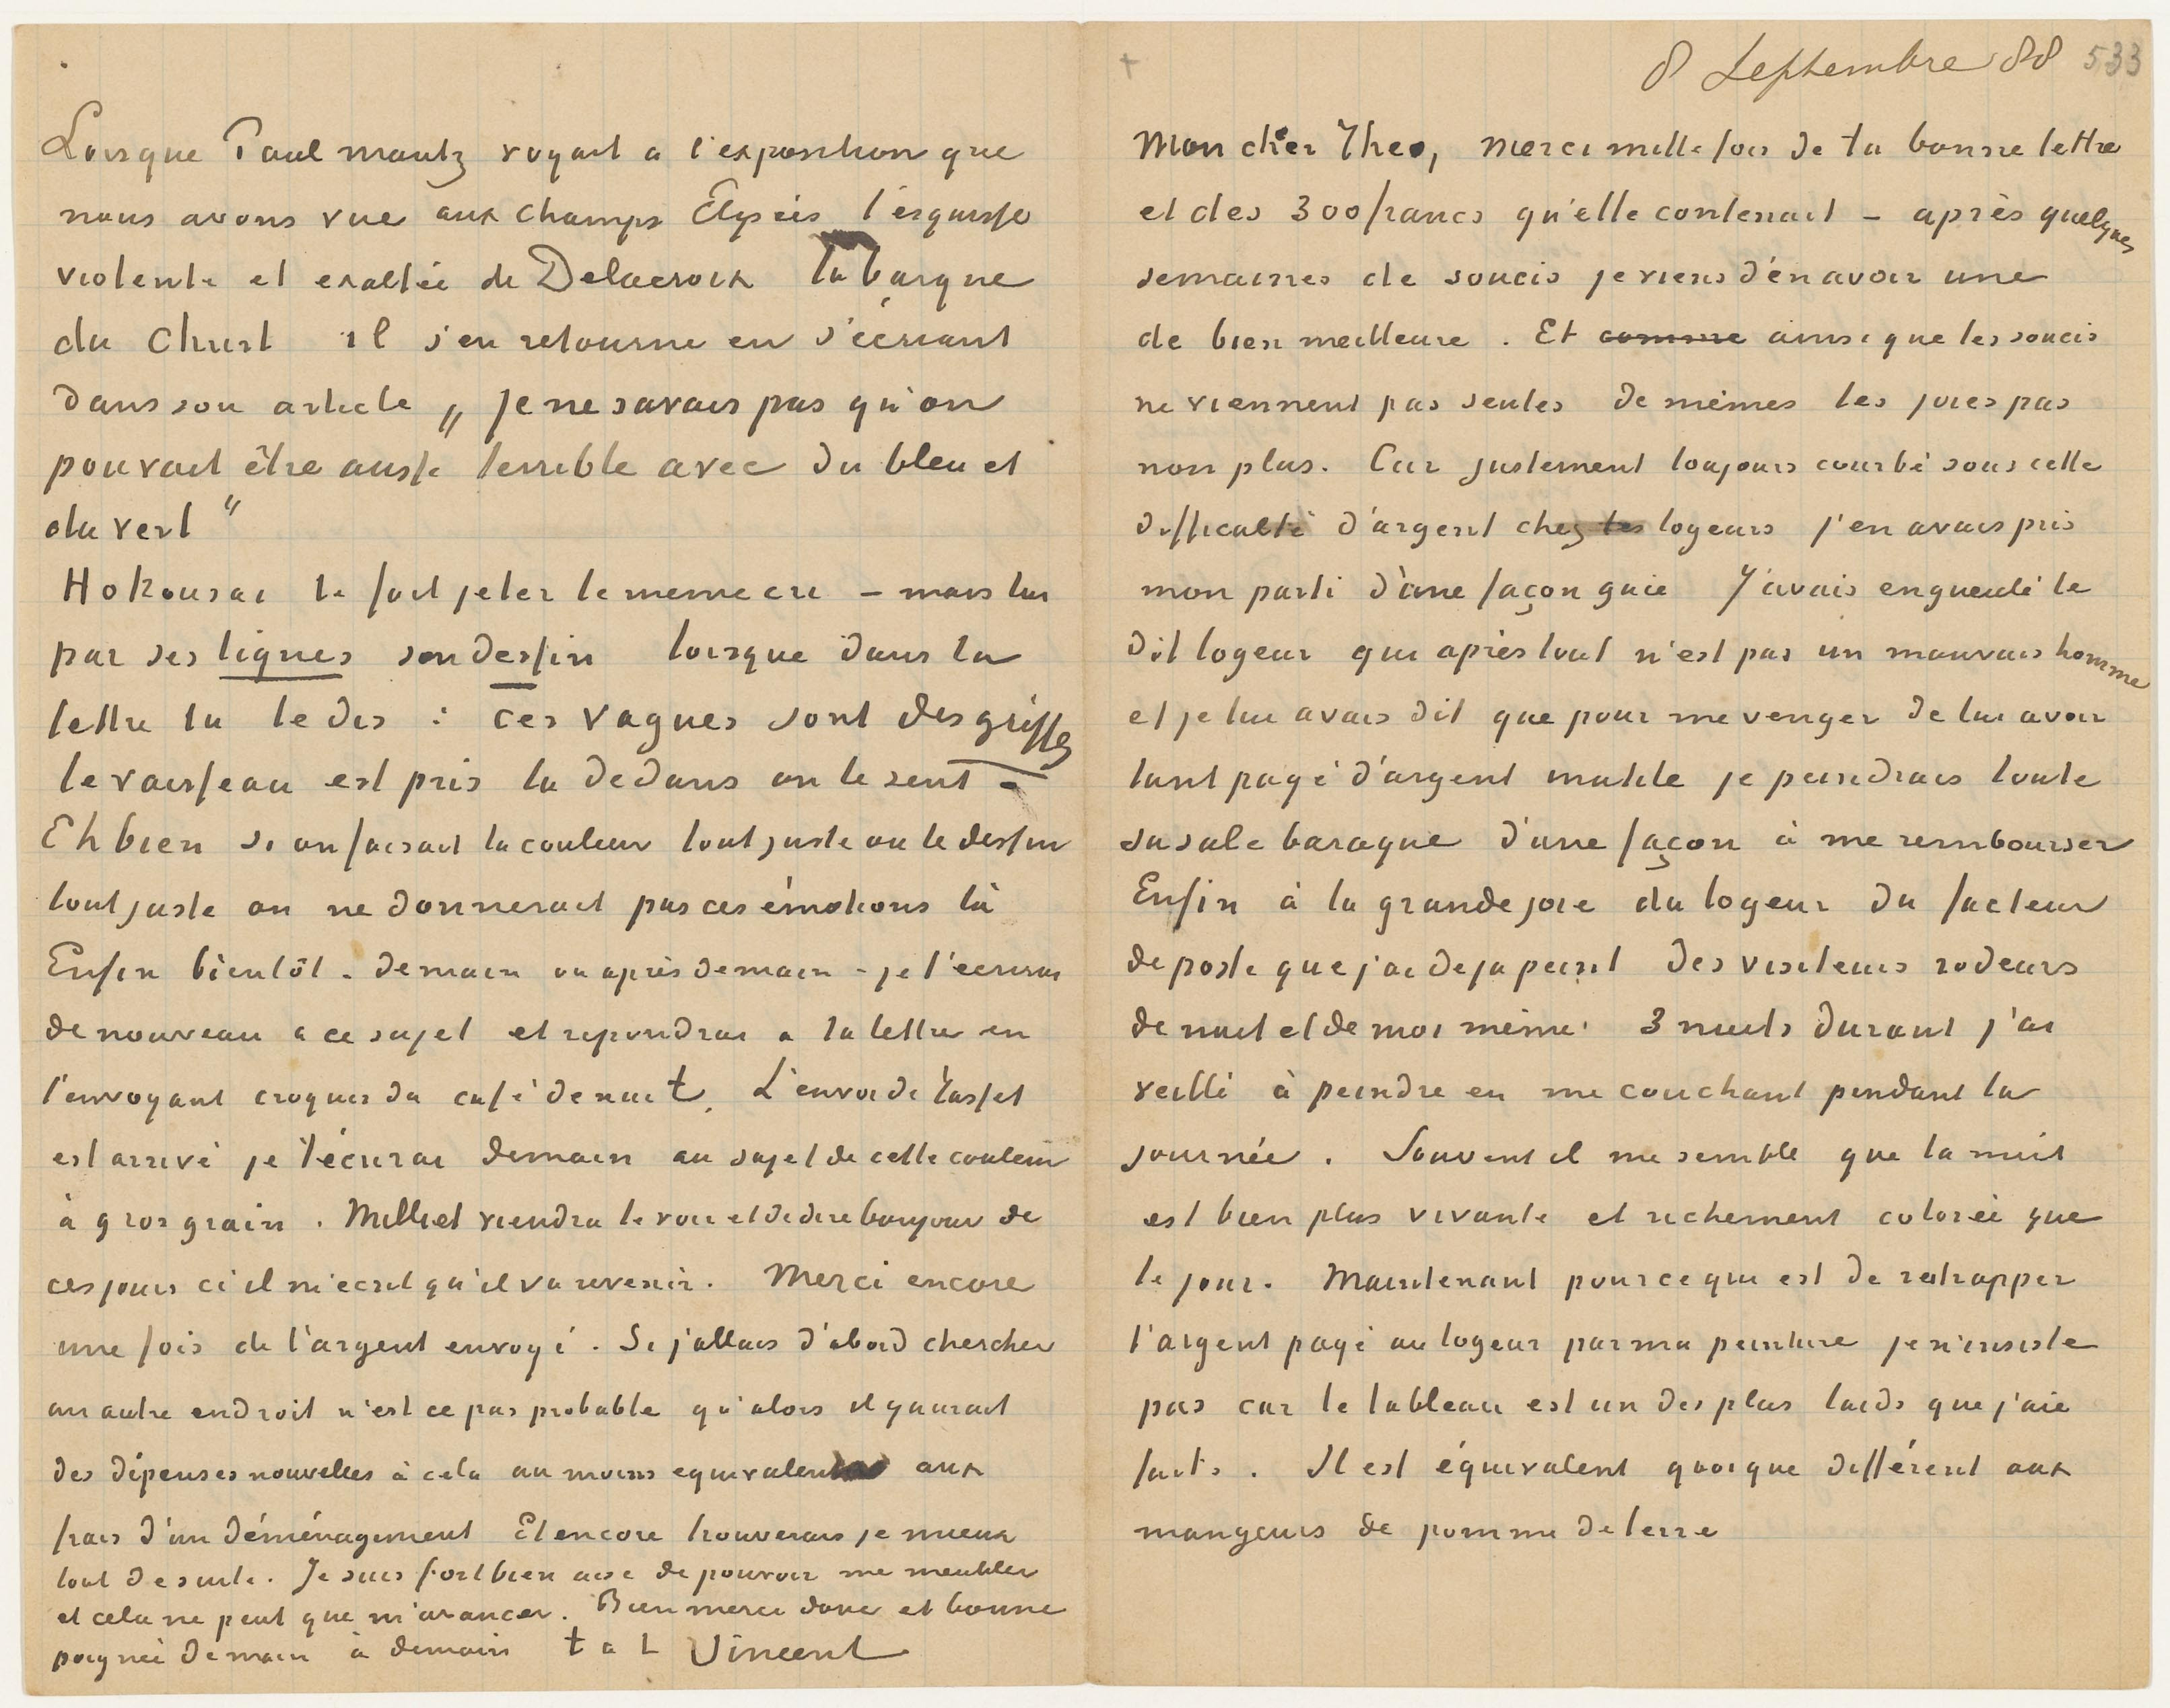 8 Septembre 88 533
Mon cher Theo, merci mille fois de ta bonne lettre
et des 300 francs qu'elle contenait – après quelques
semaines de soucis je viens d'en avoir une
de bien meilleure . Et comme ainsi que les soucis
ne viennent pas seules de mêmes les joies pas
non plus. Car justement toujours courbé sous cette
difficulté d'argent chez les logeurs j'en avais pris
mon parti d'une façon gaie J'avais engueulé le
dit logeur qui après tout n'est pas un mauvais homme
et je lui avais dit que pour me venger de lui avoir
tant payé d'argent inutile je peindrais toute
sa sale baraque d'une façon à me rembourser
Enfin à la grande joie du logeur du facteur
de poste que j'ai deja peint des visiteurs rodeurs
de nuit et de moi même. 3 nuits durant j'ai
veillé à peindre en me couchant pendant la
journée . Souvent il me semble que la nuit
est bien plus vivante et richement colorée que
le jour. Maintenant pour ce qui est de ratrapper
l'argent payé au logeur par ma peinture je n'insiste
pas car le tableau est un des plus laids que j'aie
faits . Il est équivalent quoique différent aux
mangeurs de pomme de terre
Lorsque Paul mantz voyait a l'exposition que
nous avons vue aux Champs Elyseés l'esquisse
violente et exaltée de Delacroix la barque
du Christ il s'en retourne en s'écriant
dans son article „ Je ne savais pas qu'on
pouvait être aussi terrible avec du bleu et
du vert "
Hokousai te fait jeter le meme cri – mais lui
par ses lignes son dessin lorsque dans ta
lettre tu te dis : ces vagues sont des griffes
le vaisseau est pris la dedans on le sent –
Eh bien si on faisait la couleur tout juste ou le dessin
tout juste on ne donnerait pas ces émotions là
Enfin bientôt – demain ou après demain – je t'ecrirai
de nouveau a ce sujet et repondrai a ta lettre en
t'envoyant croquis du café de nuit. L'envoi de Tasset
est arrivé je t'écrirai demain au sujet de cette couleur
à gros grain . Milliet viendra te voir et de dire bonjour de
ces jours ci il m'ecrit qu'il va revenir. Merci encore
une fois de l'argent envoyé . Si j'allais d'abord chercher
un autre endroit n'est ce pas probable qu'alors il y aurait
des dépenses nouvelles à cela au moins equivalentes aux
frais d'un déménagement Et encore trouverais je mieux
tout de suite. Je suis fort bien aise de pouvoir me meubler
et cela ne peut que m'avancer. Bien merci donc et bonne
poignée de main à demain t à t Vincent